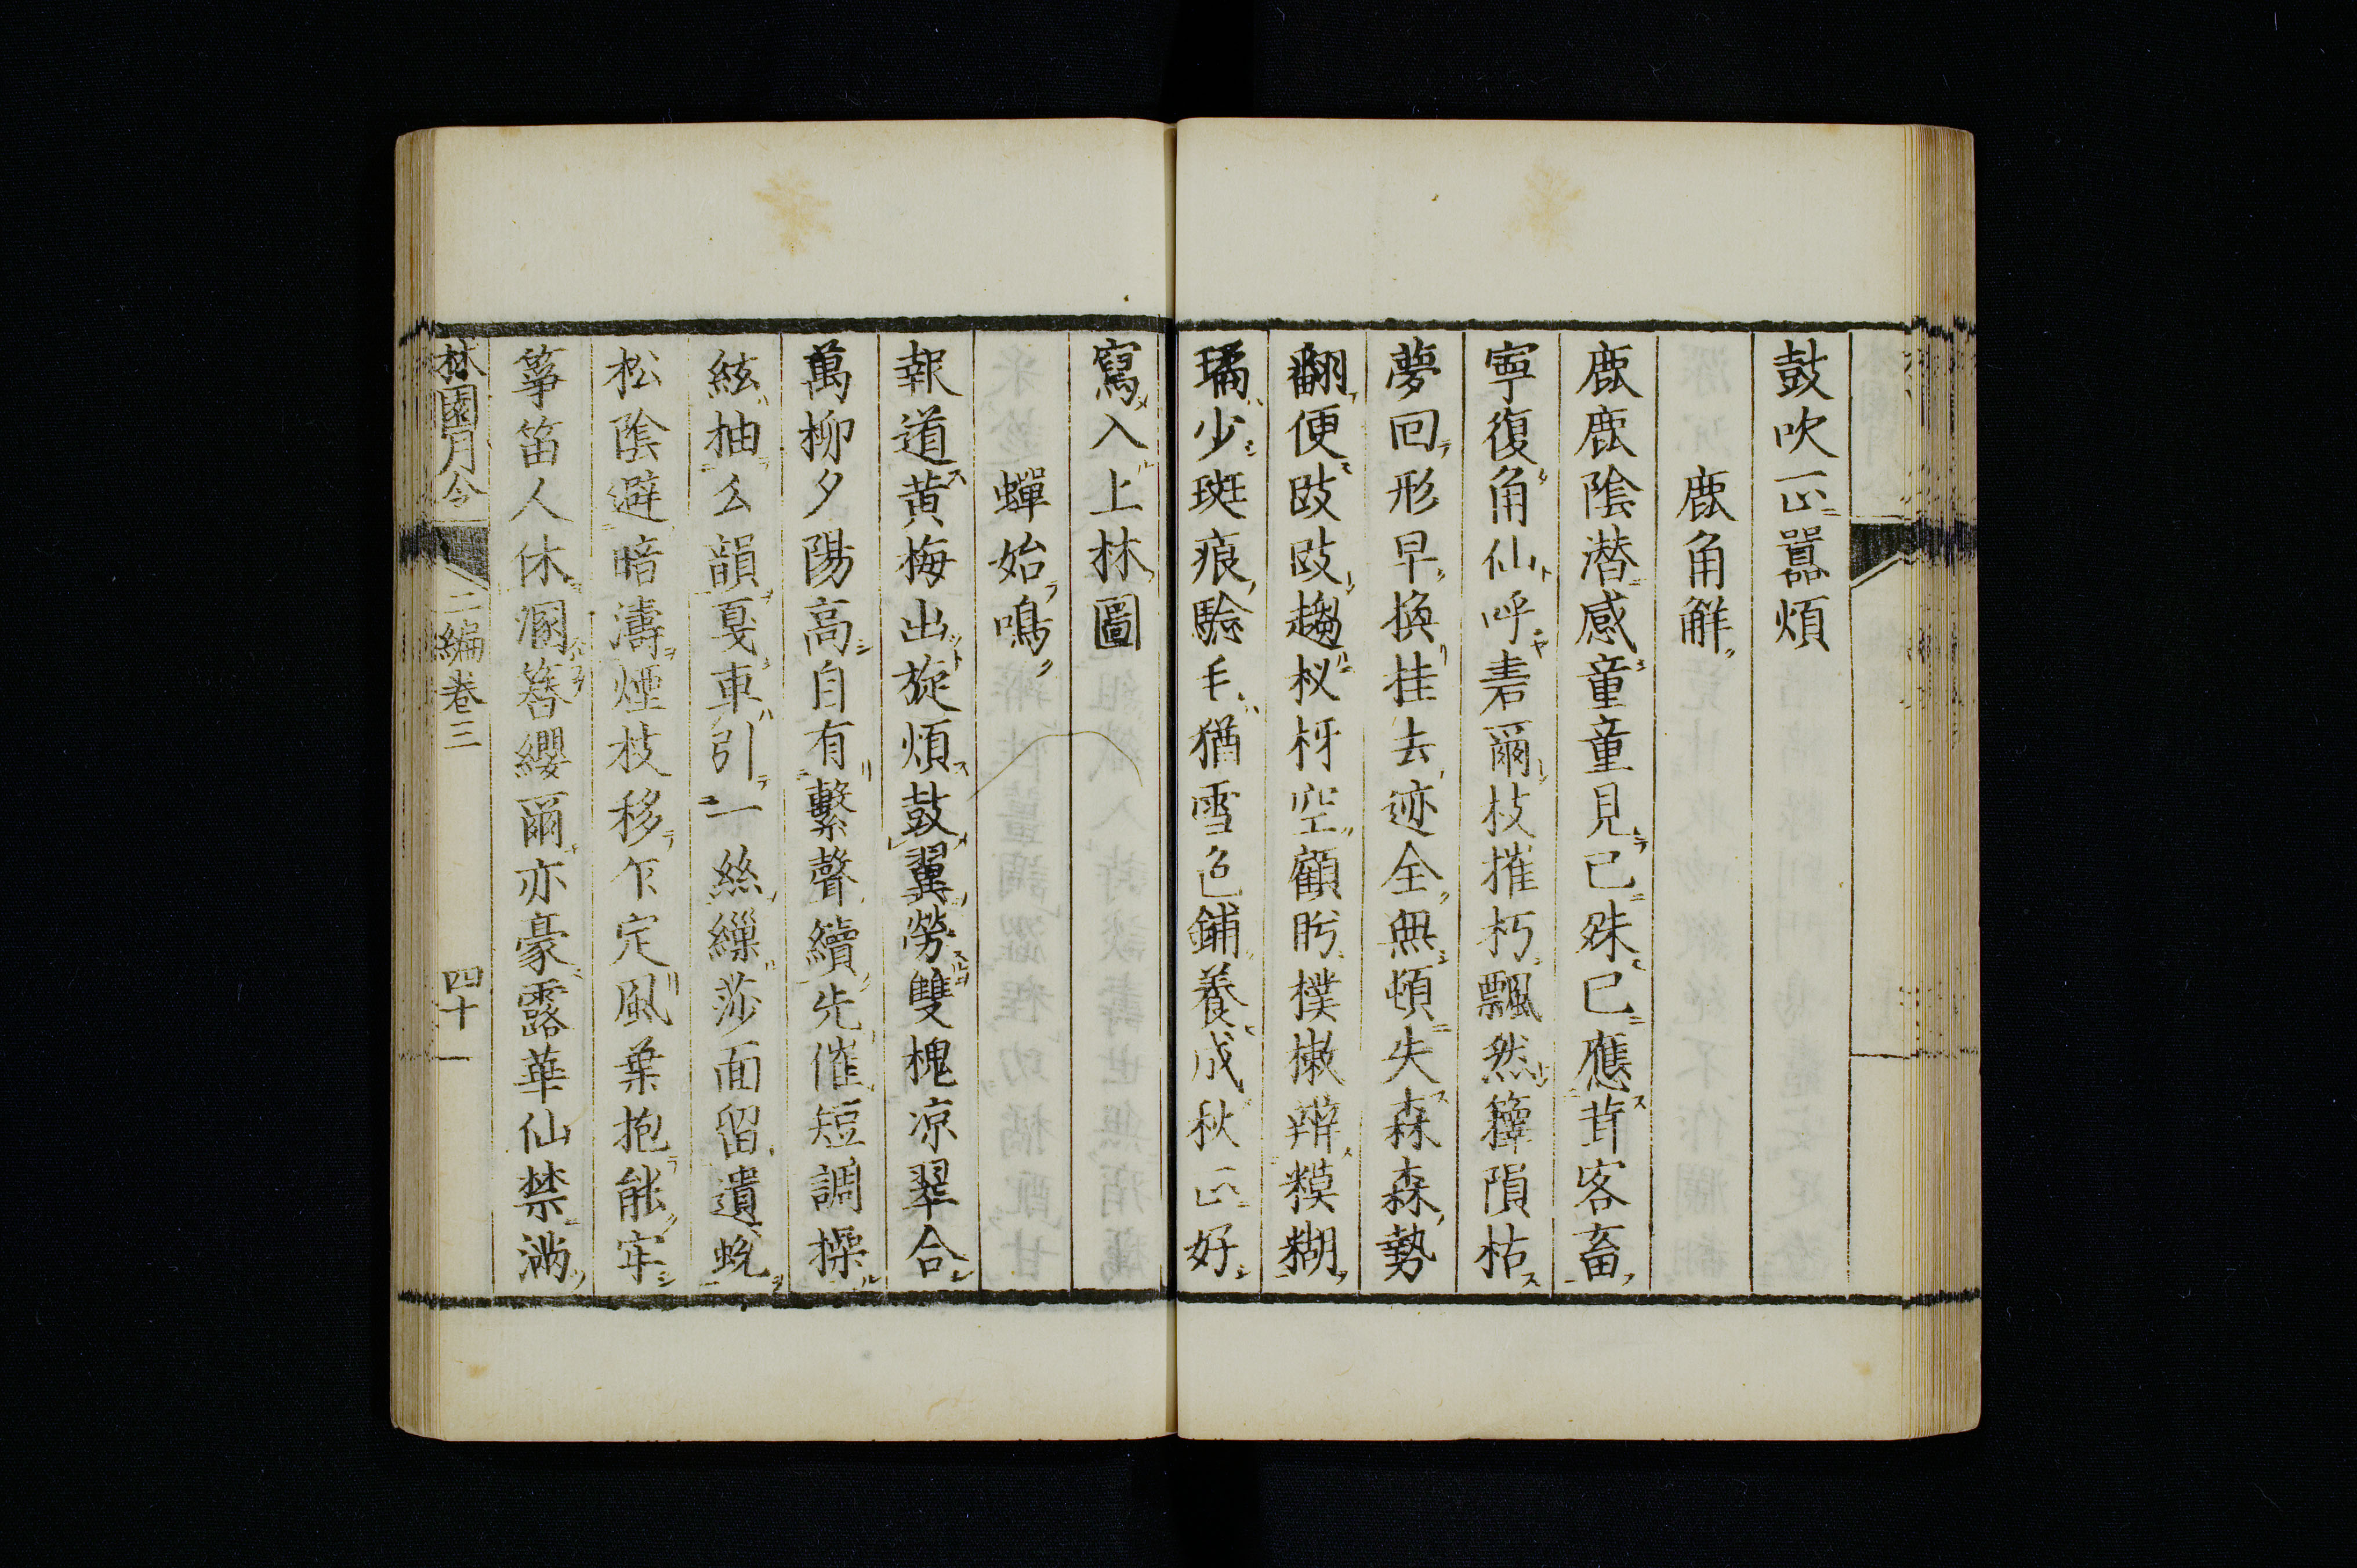 鼓吹正囂煩
鹿角解
鹿鹿陰潛感童童見已殊已應茸客畜
寧復角仙呼砉爾枝摧朽飄然籜隕枯
夢回形早換挂去迹全無頓失森森勢
翻便跂跂趨杈枒空顧眄樸樕辨糢糊
璚少斑痕驗毛猶雪色鋪養成秋正好
寫入上林圖
蟬始鳴
報道黄梅出旋煩鼓翼勞雙槐凉翠合
萬柳夕陽高自有繫聲續先催短調操
絃抽么韻戛車引一絲繅莎面留遺蛻
松陰避暗濤煙枝移乍定風葉抱能牢
箏笛人休溷簪纓爾亦豪露華仙禁滿
林園月令 二編卷三 四十一